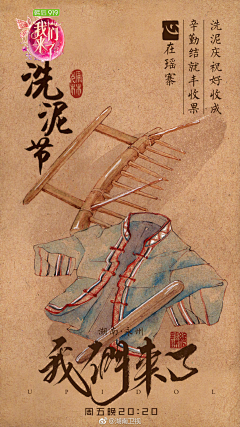 我们来了
洗泥节
洗泥庆祝好收成
辛勤结就丰收果
心在瑶寨
湖南·永州
我们来了
UP IDOL
周五晚20:20
@湖南卫视